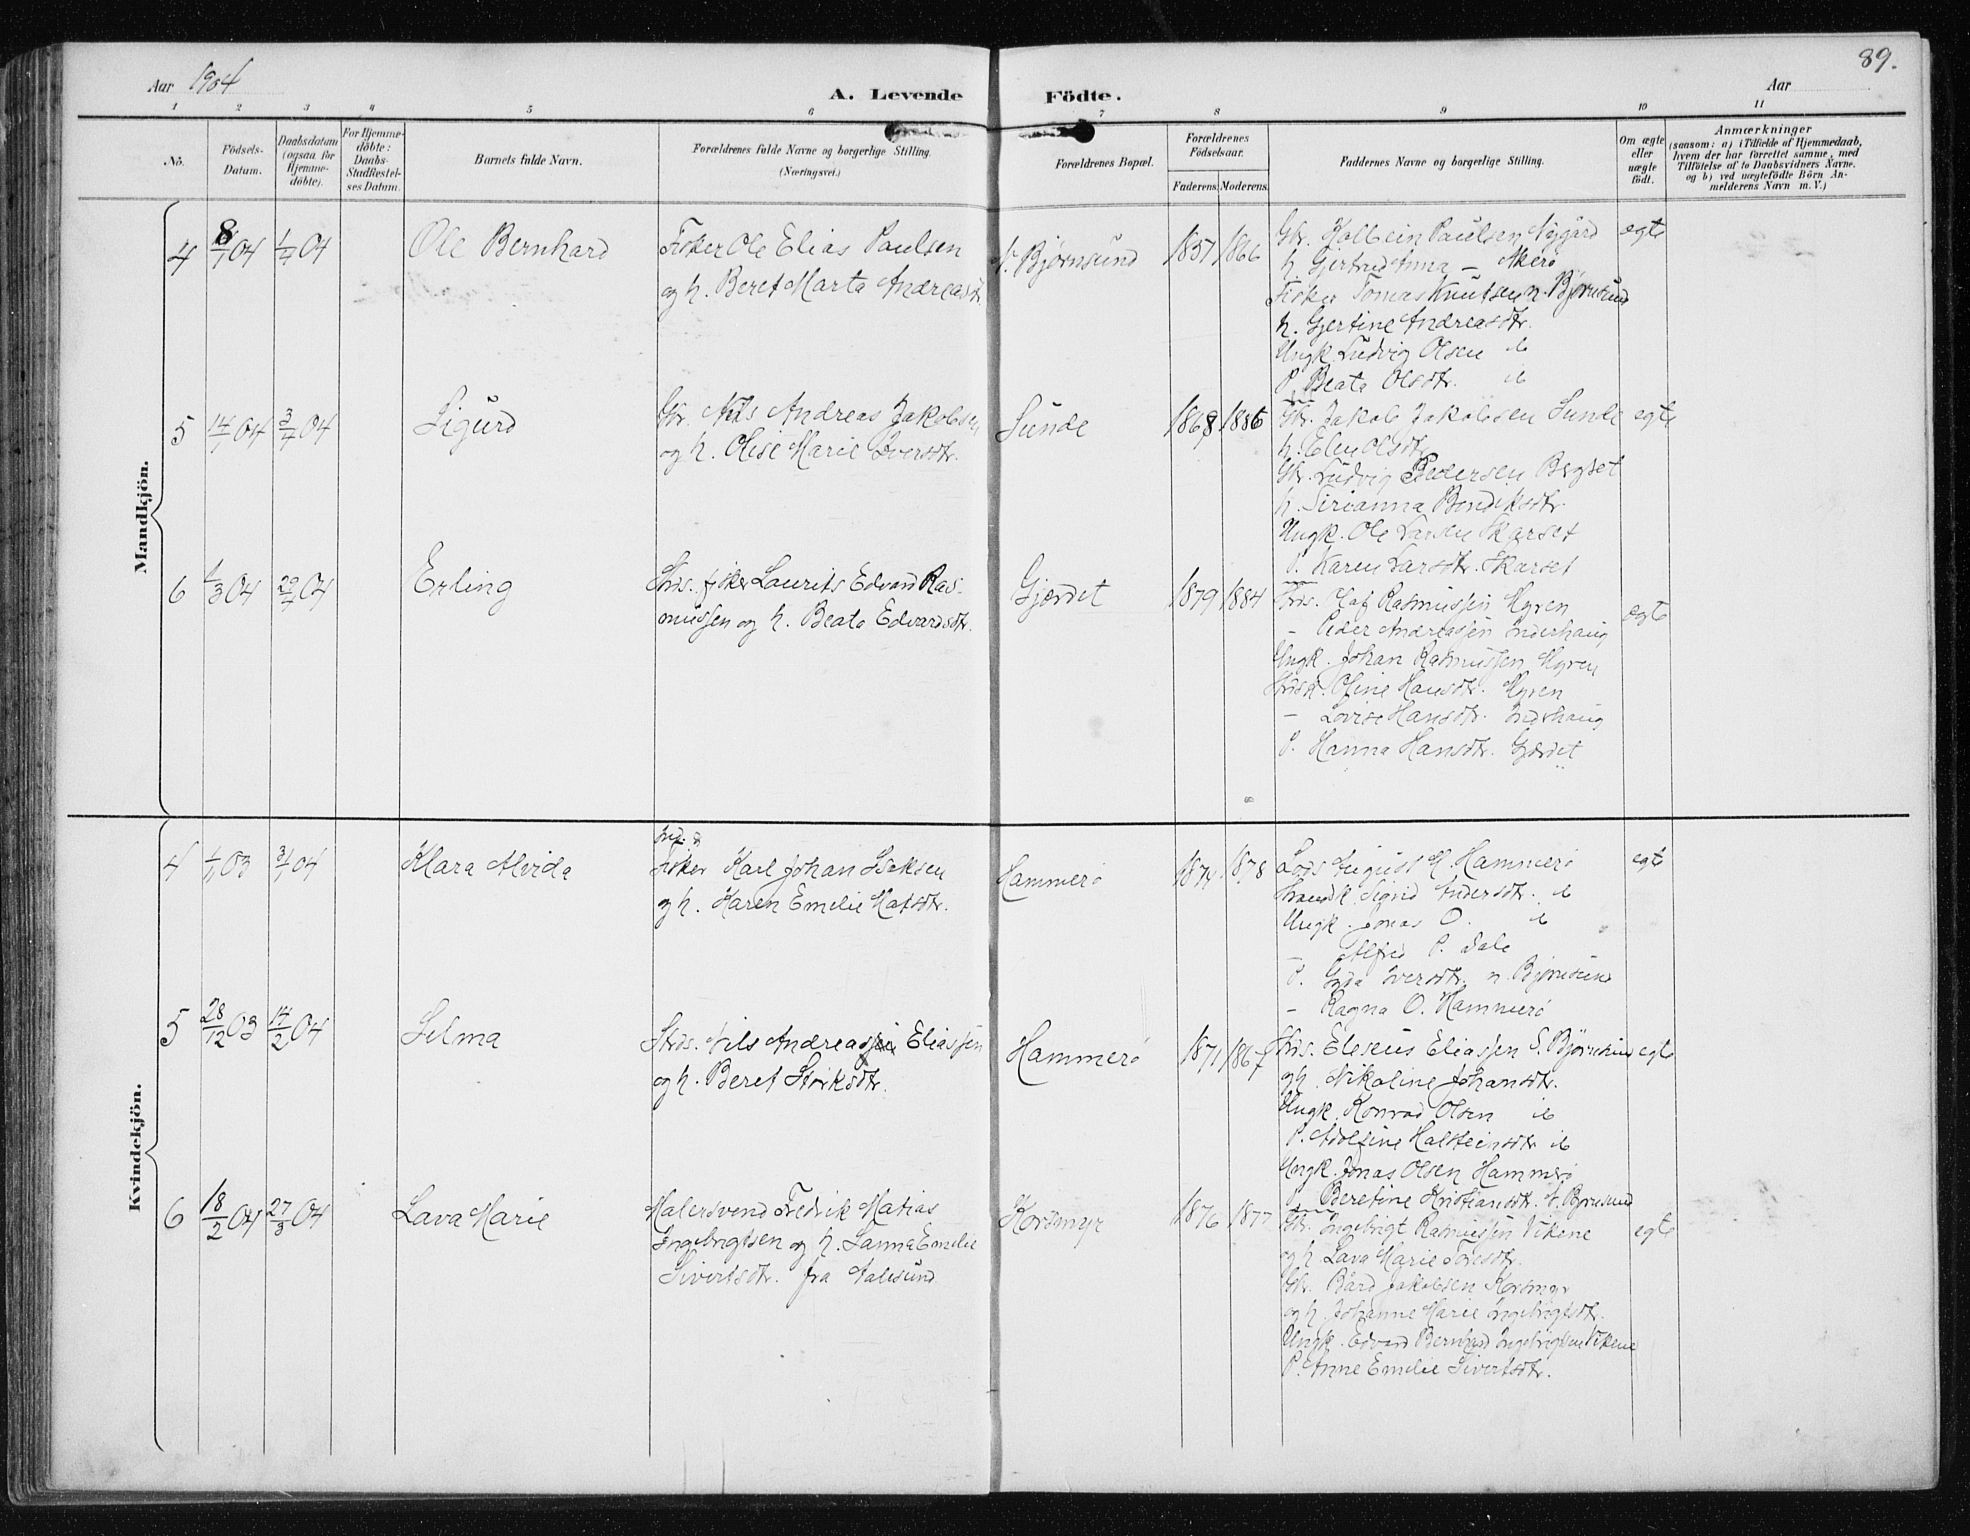 Aar 1904
A. Levende Födte.
Aar
89.
1 2 3 4 5 6 7 8 9 10 11
No.
Födsels-Datum.
Daabsdatum (ogsaa for Hjemmedöbte).
For Hjemmedöbte: Daabs-Stadfæstelses Datum.
Barnets fulde Navn.
Forældrenes fulde Navne og borgerlige Stilling.
(Næringsvei.)
Forældrenes Bopæl.
Forældrenes Födselsaar.
Faderens. Moderens.
Faddernes Navne og borgerlige Stilling.
Om ægte eller uægte födt.
Anmærkninger
(saasom: a) i Tilfælde af Hjemmedaab,
hvem der har forrettet samme, med
Tilföielse af to Daabsvidners Navne.
og b) ved uægtefödte Börn Anmelderens Navn m. V.)
Mandkjön.
4 04 04 Ole Bernhard
Fisker Ole Elias Paulsen
og h. Beret Marta Andreasdtr
N. Bjørnsund 1857 1866
Gbr. Kolbein Paulsen Nygård
h. Gjertrud Anna — Akerø
Fisker Tomas Knutsen n. Bjørnsund
h. Gjertine Andreasdtr.
Ungk. Ludvig Olsen ib
P. Beata Olsdtr. ib
egte
5 14/1 04 3/4 04 Sigurd
Gbr. Nils Andreas Jakobsen
og h. Olise Marie Iversdtr.
Sunde 1868
Gbr. Jakob Jakobsen Sunde
h. Elen Olsdtr
Gbr. Ludvig Pedersen Bergset
h. Sirianna Bendiksdtr.
Ungk. Ole Larsen Skarset
P. Karen Larsdtr. Skarset
egte
6 1/3 04 04 Erling
Strds. fisker Laurits Edvard Rasmussen og h. Beata Edvardsdtr.
Gjerdet 1879 1884
Strds. Olaf Rasmussen Myren
— Peder Andreassen Inderhaug
Ungk. Johan Rasmussen Myren
Strdsk. Oline Hansdtr. Myren
— Lovise Hansdtr. Inderhaug
P. Hanna Hansdtr. Gjerdet
egte
Kvindekjön.
4 03 3/4 04 Klara Alvida
Fisker Karl Johan Isaksen
og h. Karen Emelie Matsdtr.
Hammerø 1874 1878
Lods August M. Hammerø
Sigrid Andersdtr. ib
Ungk. Jonas O. ib
— Alfred P. Dale
P. Gyda Iversdtr. n. Bjørnsund
— Ragna O. Hammerø
egte
5 28/12 03 14/2 04 Selma
Strds. Nils Andreas Eliassen
og h. Beret Storksdtr.
Hammerø 1871 1867
Strds. Eleseus Eliassen S. Bjørnsund
og h. Nikoline Johansdtr.
Ungk. Konrad Olsen ib
P. Adolfine Halsteinsdtr ib
Ungk. Jonas Olsen Hammerø
P. Beretine Kristiansdtr. N. Bjørnsund
egte
6 18/2 04 27/3 04 Lava Marie
Malersvend Fredrik Matias
Ingebrigtsen og h. Sanna Emelie
Sivertsdtr. fra Aalesund
Korsmyr 1876 1877
Gbr. Ingebrigt Rasmussen Vikene
og h. Lava Marie Toresdtr.
Gbr. Bård Jakobsen Korsmyr
og h. Johanne Marie Ingebrigtsdtr.
Ungk. Edvard Bernhard Ingebrigtsen Vikene
P. Anne Emelie Sivertsdtr.
egte